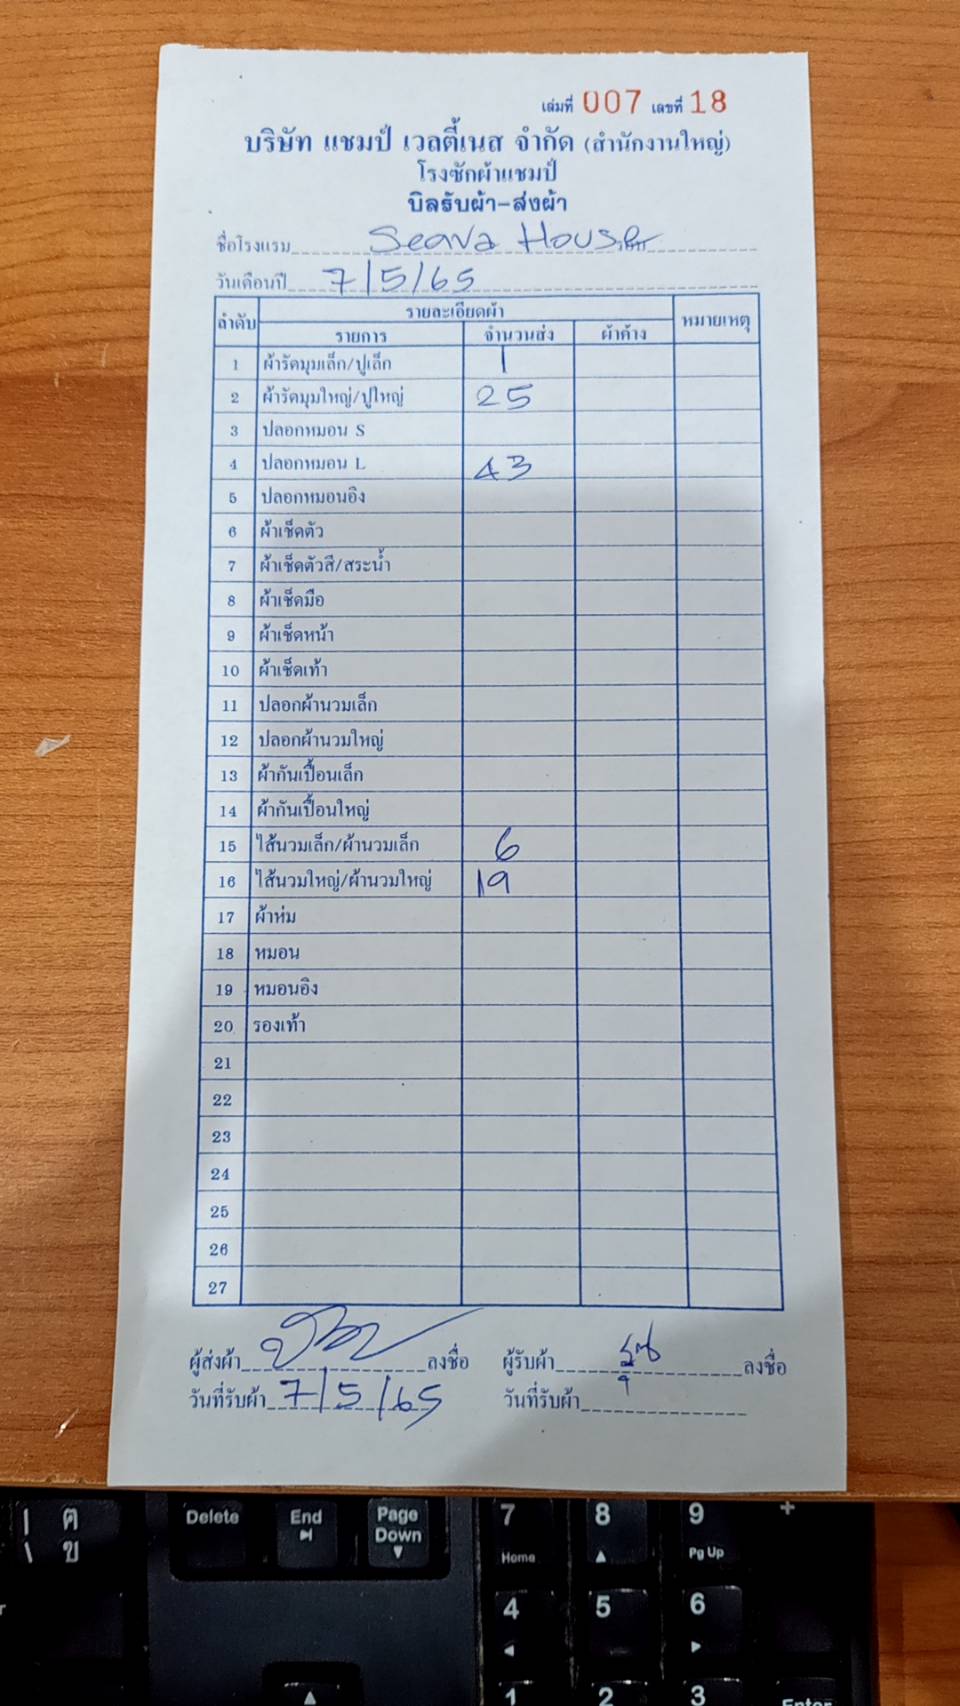 เล่มที่ 007 เลขที่ 18
บริษัท แชมป์ เวลตี้เนส จำกัด (สำนักงานใหญ่)
โรงซักผ้าแชมป์
บิลรับผ้า-ส่งผ้า
ชื่อโรงแรม Seava House
วันเดือนปี 7/5/65
ลำดับ รายละเอียดผ้า หมายเหตุ
รายการ จำนวนส่ง ผ้าค้าง
1 ผ้ารัดมุมเล็ก/ปูเล็ก 1
2 ผ้ารัดมุมใหญ่/ปูใหญ่ 25
3 ปลอกหมอน S
4 ปลอกหมอน L 43
5 ปลอกหมอนอิง
6 ผ้าเช็ดตัว
7 ผ้าเช็ดตัวสี/สระน้ำ
8 ผ้าเช็ดมือ
9 ผ้าเช็ดหน้า
10 ผ้าเช็ดเท้า
11 ปลอกผ้านวมเล็ก
12 ปลอกผ้านวมใหญ่
13 ผ้ากันเปื้อนเล็ก
14 ผ้ากันเปื้อนใหญ่
15 ไส้นวมเล็ก/ผ้านวมเล็ก 6
16 ไส้นวมใหญ่/ผ้านวมใหญ่ 19
17 ผ้าห่ม
18 หมอน
19 หมอนอิง
20 รองเท้า
21
22
23
24
25
26
27
ผู้ส่งผ้า ลงชื่อ ผู้รับผ้า ลงชื่อ
วันที่รับผ้า 7/5/65 วันที่รับผ้า
ฅ
ข
Delete End Page Down 7 Home 8 9 Pg Up +
4 5 6
1 2 3 Enter